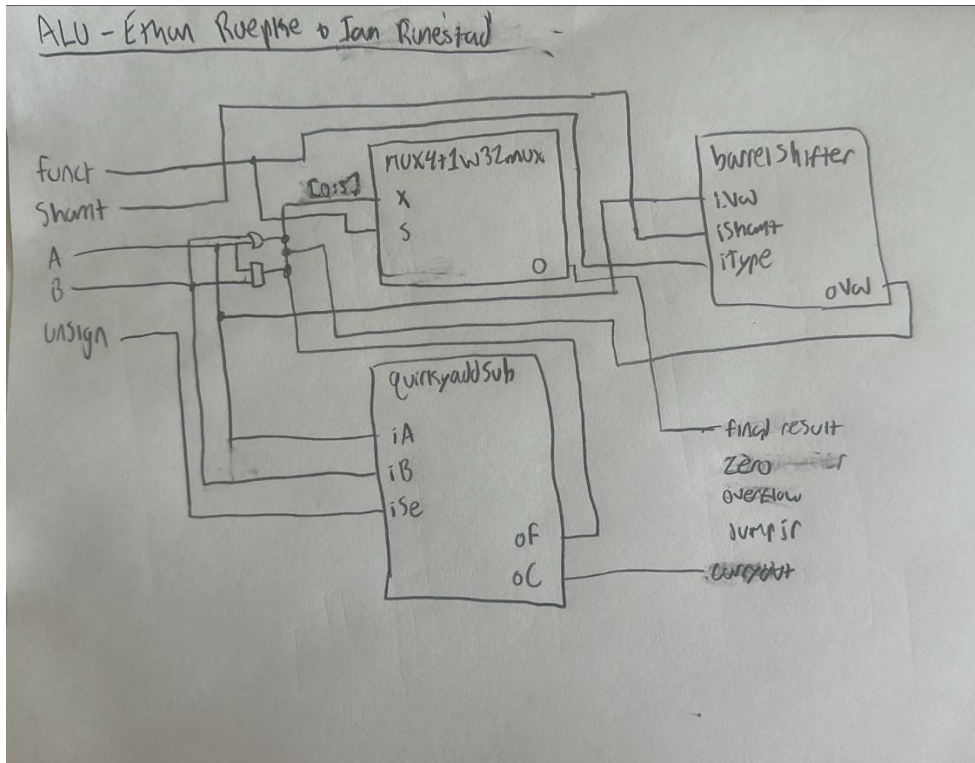 ALU - Ethan Roepke & Ian Runestad
funct
Shamt
A
B
unsign
mux4t1w32mux
X
S
O
barrelShifter
iVal
iShamt
iType
oVal
quirkyaddSub
iA
iB
iSe
oF
oC
final result
Zero
overflow
Jump ir
carryout